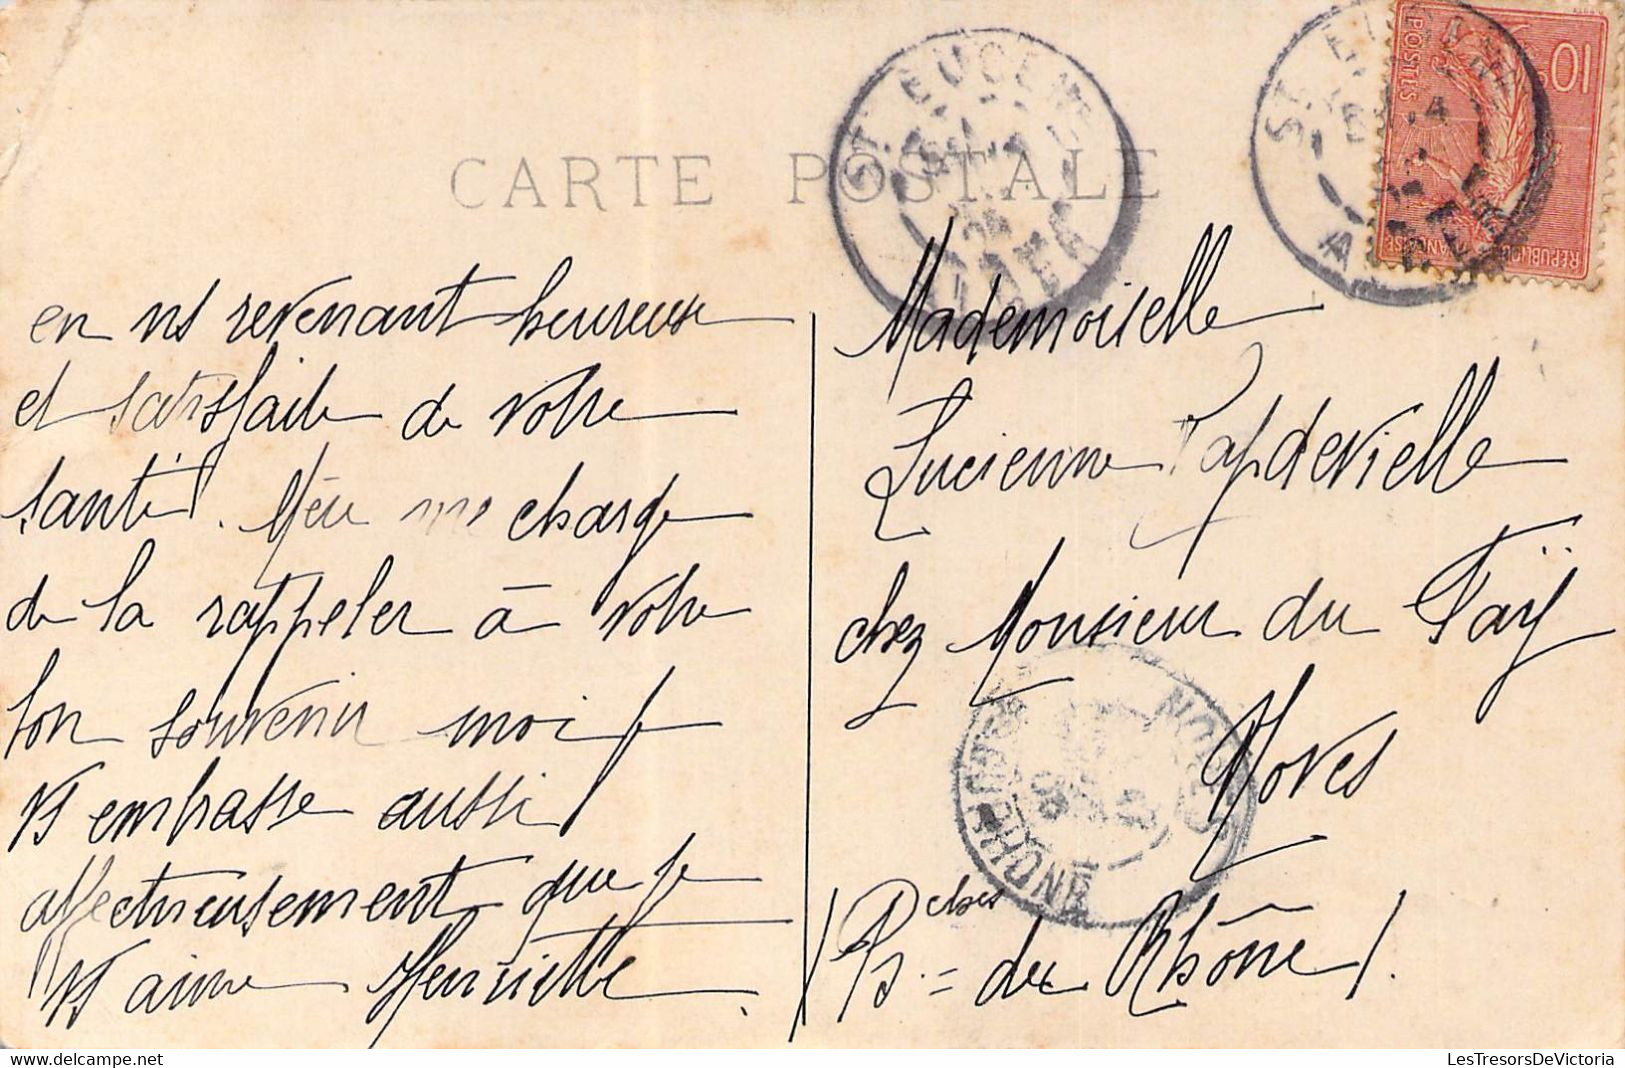 CARTE POSTALE
ST EUGENE
ALGER
ST EUGENE
10c
POSTES
REPUBLIQUE FRANÇAISE
en ns revenant heureuse
et satisfaite de votre
santé. me charge
de la rappeler à votre
bon souvenir moi je
vs embrasse aussi
affectueusement que je
vs aime Henriette.
Mademoiselle
Lucienne Capdevielle
chez Monsieur du Faÿ
Noves
(Bches = du Rhône).
NOVES
BOUCHES-DU-RHONE
LesTresorsDeVictoria